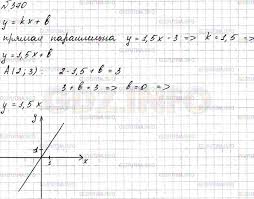 № 370
y = kx + b
прямая параллельна y = 1,5x - 3 => k = 1,5 =>
y = 1,5x + b
A(2; 3): 2·1,5 + b = 3
3 + b = 3 => b = 0 =>
y = 1,5x
y
1
1
x